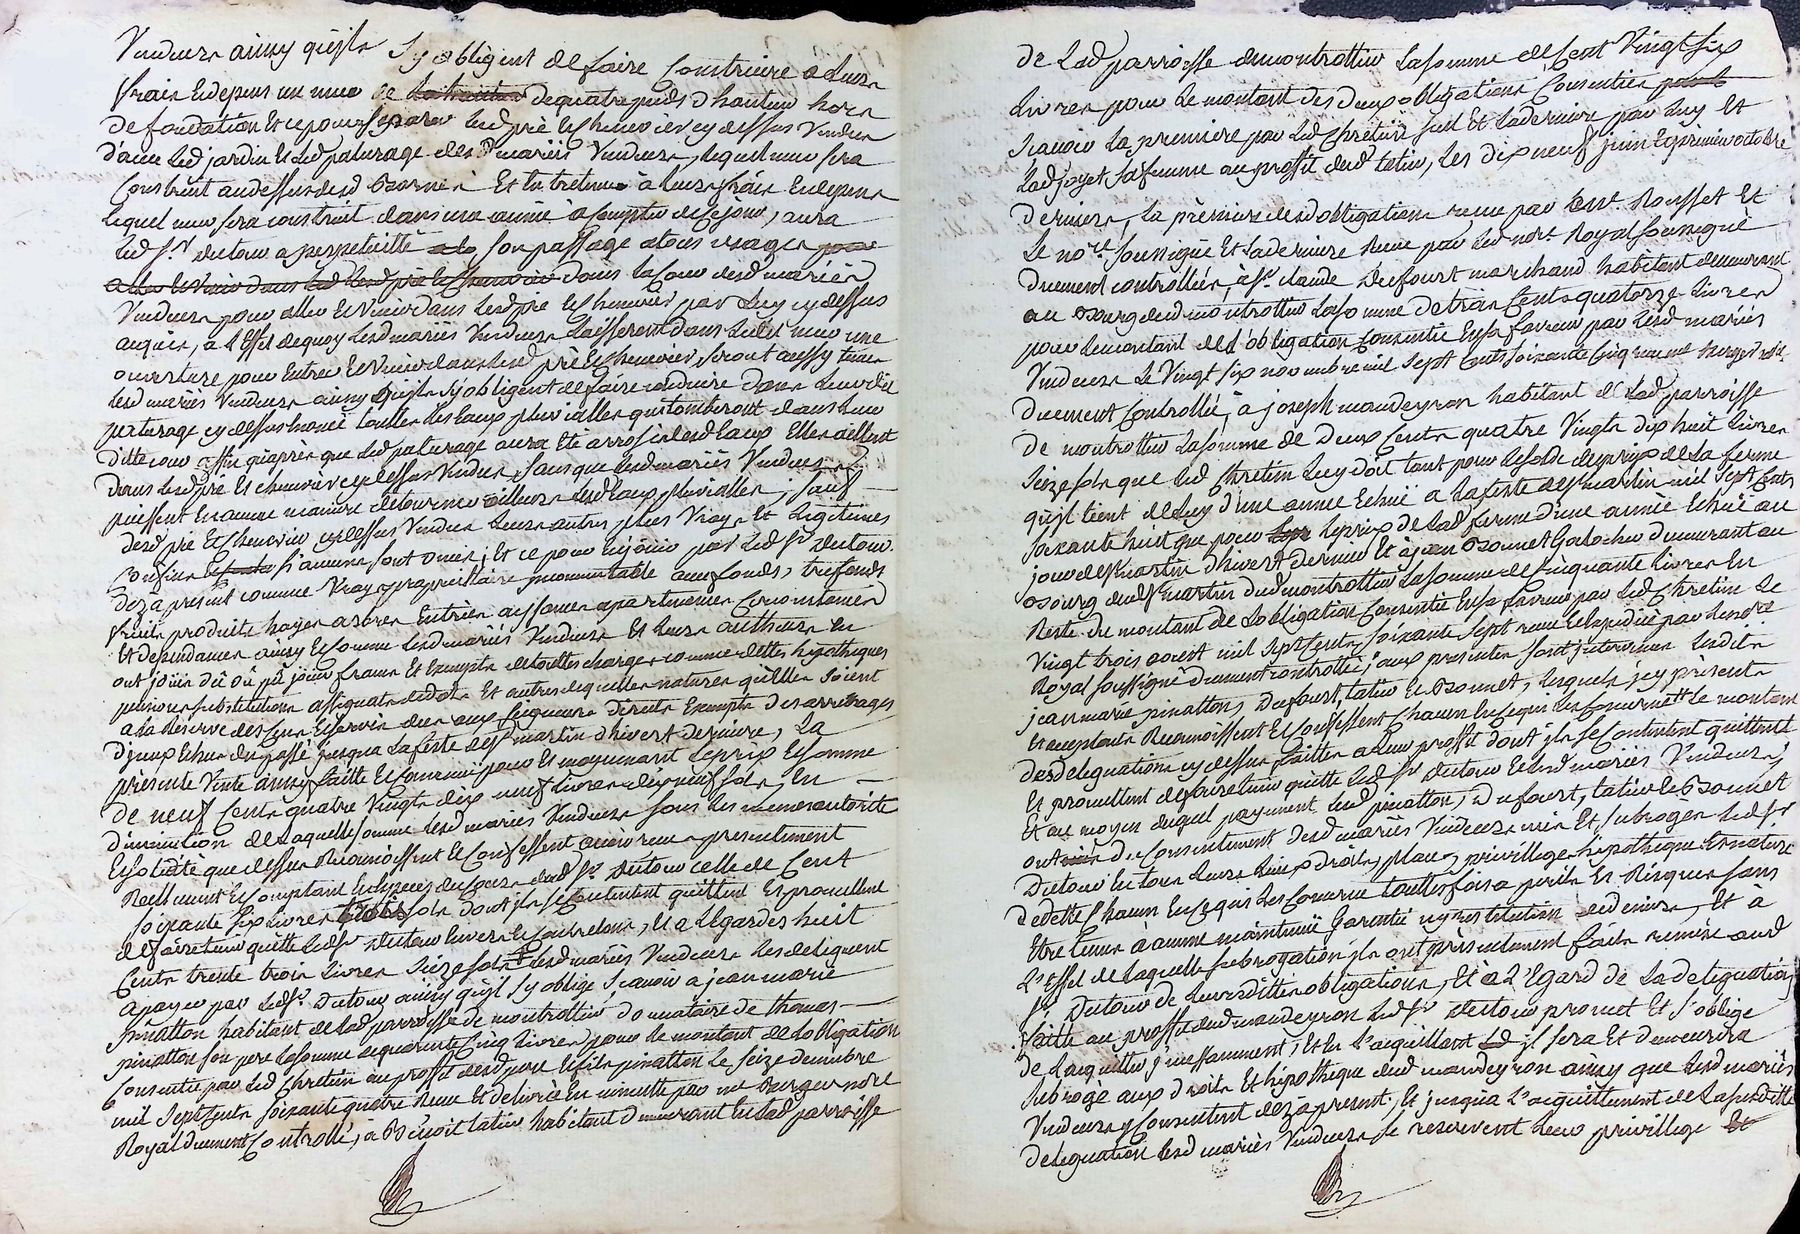 Vendeurs ainsy qu'jls s'y obligent de faire Construire a Leurs
frais Et depens un mur de la hauteur de quatre pieds d'hauteur hors
de fondation Et ce pour separer Led pré Et Chenevier cy dessus Vendus
d'avec Led jardin Et Led paturage desd mariés Vendeurs, Lequel mur sera
Construit au dessus desd Bornes Et Entretenu à Leurs frais Et depens
Lequel mur sera construit dans une année à Compter de Ce jour, aura
Led Sr. dutour a perpetuitté son passage a tous usages pour
aller Et Venir dans Led pré Et Chenevier dans La Cour desd mariés
Vendeurs pour aller Et Venir dans Led pré Et Chenevier par Luy cy dessus
acquis, a L'Effet de quoy Lesd mariés Vendeurs Laisseront dans Ledit mur une
ouverture pour Entrer Et Venir dans Led pré Et Chenevier, seront aussy tenus
Lesd mariés Vendeurs ainsy qu'jls s'y obligent de faire conduire dans Leurdit
paturage cy dessus toutes Les Eaux pluvialles qui tomberont dans Leur
ditte cour affin qu'après que Led paturage aura Eté arrosé desd Eaux Elles aillent
dans Led pré Et chenevier cy dessus Vendus, sans que Lesd mariés Vendeurs
puissent En aucune maniere detourner ailleurs Lesd Eaux pluvialles; sauf
desd pré Et Chenevier cy dessus Vendus Leurs autres plus Vrays Et Legitimes
Confins s'aucuns sont omis; Et ce pour En jouir par Led Sr dutour
dez a present comme Vray proprietaire jncommutable avec fonds, trefonds
fruits produits hayes arbres Entrées aysances apartenances Circonstances
Et dependances ainsy Et Comme Lesd mariés Vendeurs Et Leurs autheurs En
ont jouis dû ou pû jouir francs Et Exempts de touttes charges comme dettes hipotheques
pensions substitutions assignats de dots Et autres de quelles natures qu'Elles soient
a La Reserve des Cens Et servis dus aux seigneurs directs Exempts d'arrerages
d'jceux Echus du passé jusqua La feste de St martin d'hivert derniere, La
presente Vente ainsy faitte Et Convenüe pour Et moyennant Le prix Et somme
de neuf Cents quatre Vingts dix neuf Livres dix neuf sols, En
diminution de Laquelle somme Lesd mariés Vendeurs sous Les memes autorité
Et solidité que dessus Reconnoissent Et Confessent avoir reçu presentement
Reellement Et Comptant En Especes de Cours dud Sr. Dutour celle de Cent
soixante six Livres trois sols dont jls se Contentent quittent Et promettent
de faire tenir quitte Led Sr Dutour Envers Et Contre tous, Et a L'Egard des huit
Cents trente trois Livres seize sols Lesd mariés Vendeurs Les deleguent
a payer par Led Sr. Dutour ainsy qu'jl s'y oblige sçavoir a jean marie
pinatton habitant de Lad parroisse de montrottier donnataire de thomas
pinatton son pere La somme de quarante Cinq Livres pour Le montant de L'obligation
Consentie par Led Chretin au proffit desd pere Et fils pinatton Le seize decembre
mil sept Cents soixante quatre Recue Et delivrée En minutte par me Berger nore
Royal duement Controllé, à Benoit tativ habitant demeurant En Lad parroisse
de Lad parroisse de montrottier La somme de Cent Vingt six
Livres pour Le montant des deux obligations Consenties
scavoir La premiere par Led Chretin seul Et La derniere par Luy Et
Lad joyet sa femme au proffit dud tativ, Les dix neuf juin Et premier octobre
derniers, La premiere desd obligations recue par Rousset Et
Le nore. soussigné Et La derniere Recue par Led nore. Royal soussigné
Duement controllées, à Sr. claude Dufourt marchand habitant demeurant
au Bourg dud montrottier La somme de trois Cents quatorze Livres
pour Le montant de L'obligation Consentie En sa faveur par Lesd mariés
Vendeurs Le Vingt six novembre mil sept Cents soixante Cinq recue me Berger
Duement Controllé, à joseph maudeyron habitant de Lad parroisse
de montrottier La somme de Deux Cents quatre Vingts dix huit Livres
seize sols que Led Chretin Luy doit tant pour Le solde du prix de La ferme
qu'jl tient de Luy d'une année Echuë a La feste de St martin mil sept Cents
soixante huit que pour Le prix de Lad ferme d'une année Echuë au
jour de St martin d'hivert dernier Et à jean Bonnet Galocher demeurant au
Bourg de St martin dud montrottier La somme de Cinquante Livres En
Reste du montant de L'obligation Consentie En sa faveur par Led Chretin Le
Vingt trois aoust mil sept Cents soixante sept recue Et Expediée par Led nore
Royal soussigné Duement controllé; aux presentes sont jntervenus Lesdits
jean marie pinatton, Dufourt, tativ Et Bonnet, Lesquels jcy présents
Et acceptants Reconnoissent Et Confessent Chacun En Ce qui Les Concernent Le montant
des delegations cy dessus faittes a Leur proffit dont jls se Contentent quittent
Et promettent de faire tenir quitte Led Sr Dutour Et Lesd mariés Vendeurs,
Et au moyen duquel payement Lesd pinatton, Dufourt, tativ Et Bonnet
ont du Consentement desd mariés Vendeurs mis Et subrogés Led Sr
Dutour En tous Leurs Lieux Droits, places, privilleges hipotheques Et nature
de dette Chacun En Ce qui Les Concerne touttesfois a perils Et Risques sans
Etre tenus à aucune maintenüe Garentie ny restitution de deniers, Et à
L'Effet de Laquelle subrogation jls ont présentement faits remise aud
Sr. Dutour de Leursdittes obligations, Et à L'Egard de La delegation
faitte au proffit dud maudeyron Led Sr Dutour promet Et s'oblige
de L'aquitter jncessamment, Et En L'acquittant il sera Et demeurera
subrogé aux droits Et hipotheque dud maudeyron ainsy que Lesd mariés
Vendeurs y Consentent dez a present, Et jusqua L'acquittement de La susditte
delegation Lesd mariés Vendeurs se reservent Leur privillege